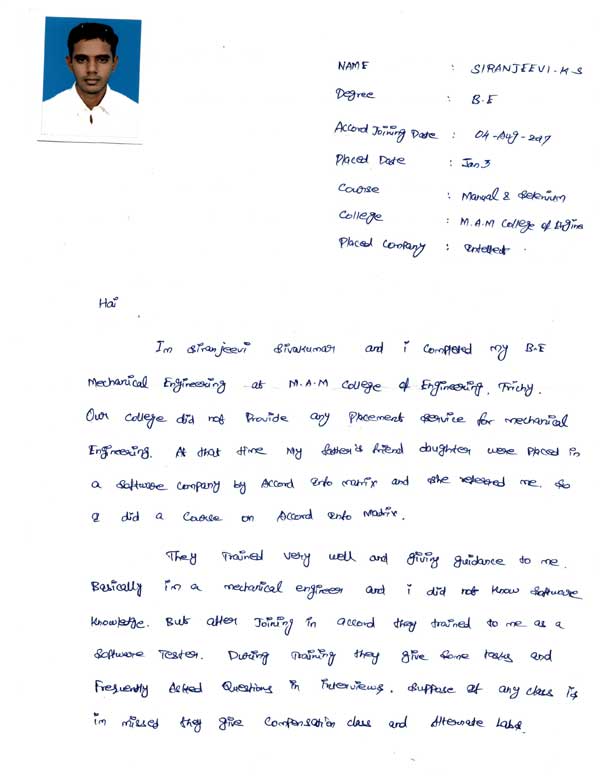 NAME : SIRANJEEVI-K S
Degree : B.E
Accord Joining Date : 04-Aug-2017
Placed Date : Jan 3
Course : Manual & Selenium
College : M.A.M College of Engine
Placed Company : Intellect.
Hai
Im Siranjeevi Sivakumar and i Completed my B.E
Mechanical Engineering at M.A.M College of Engineering, Trichy.
Our college did not Provide any Placement Service for mechanical
Engineering. At that time My father's friend daughter were Placed in
a Software company by Accord Info matrix and She refered me. So
I did a Course on Accord Info Matrix.
They Trained very well and giving guidance to me.
Basically im a mechanical engineer and i did not know Software
Knowledge. But after Joining in accord they trained to me as a
Software Tester. During training they give Some tasks and
Frequently Asked Questions in interviews. Suppose If any class is
im missed they give Compensation class and Alternate Labs.